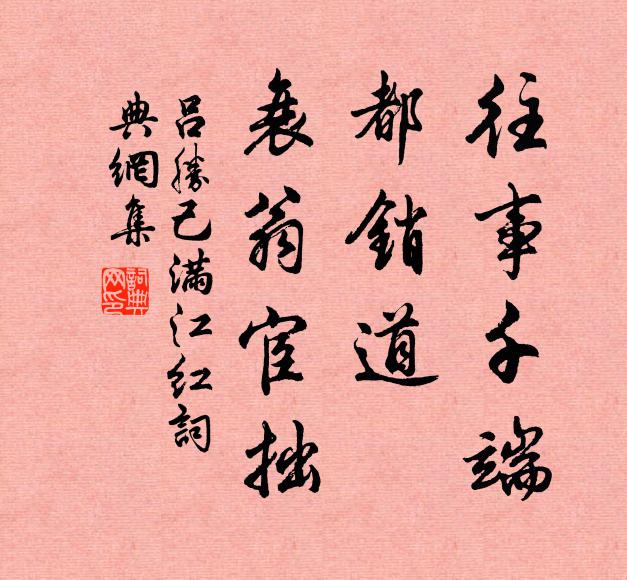 往事千端
都銷道
衰翁宦拙
呂勝己滿江紅詞
典網集
詞典網印